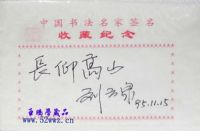 中国书法名家签名
收藏纪念
長仰高山
95.11.15
百腾学藏品
www.52wwz.cn